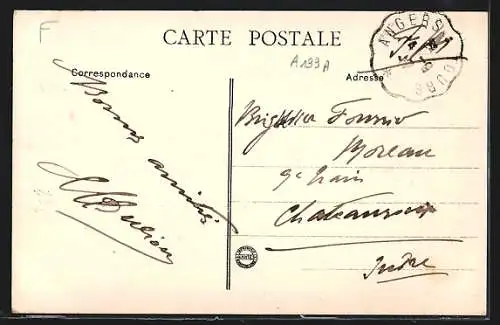 F
CARTE POSTALE
A193A
Correspondance
Adresse
ANGERS
TOURS
Bonnes amitiés
Brigadier Fournier
Moreau
9e train
Chateauroux
Indre